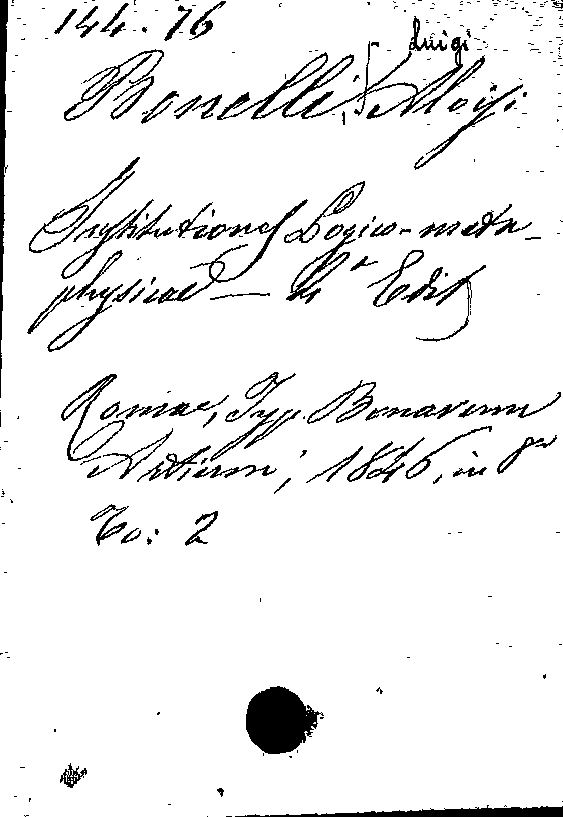 144.76
Luigi
Bonelli, Aloys:
Institutiones Logico-meta-
physicae — 4ª Edit
Romae, Typ. Bonarum
Artium, 1846, in 8vo
To: 2